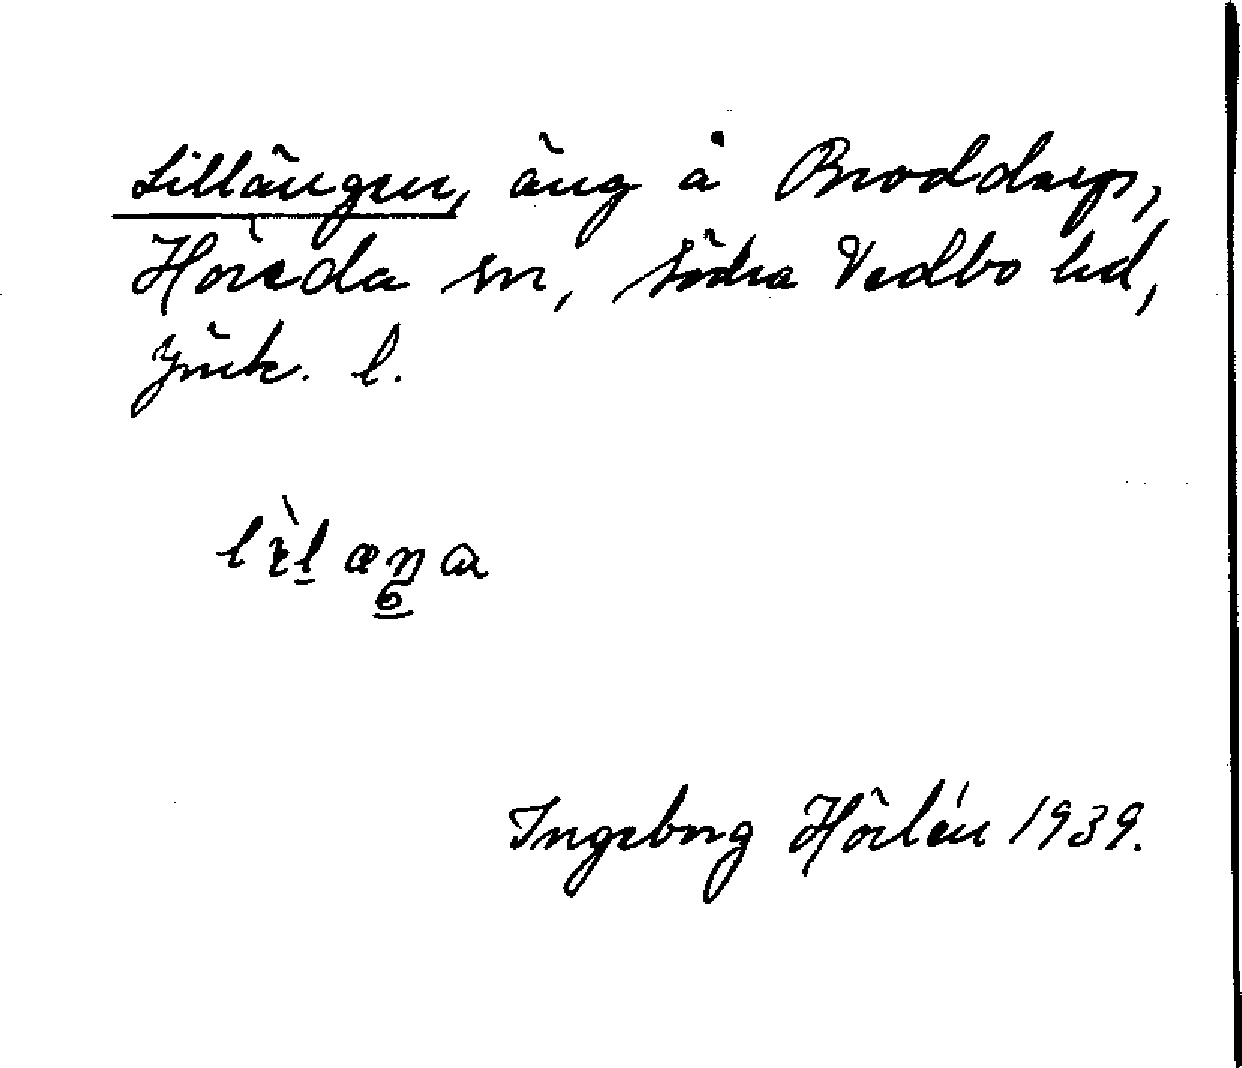 Lillängen, äng å Broddarp,
Höreda sn, Södra Vedbo hd,
Jönk. l.
Ingeborg Hörlén 1939.